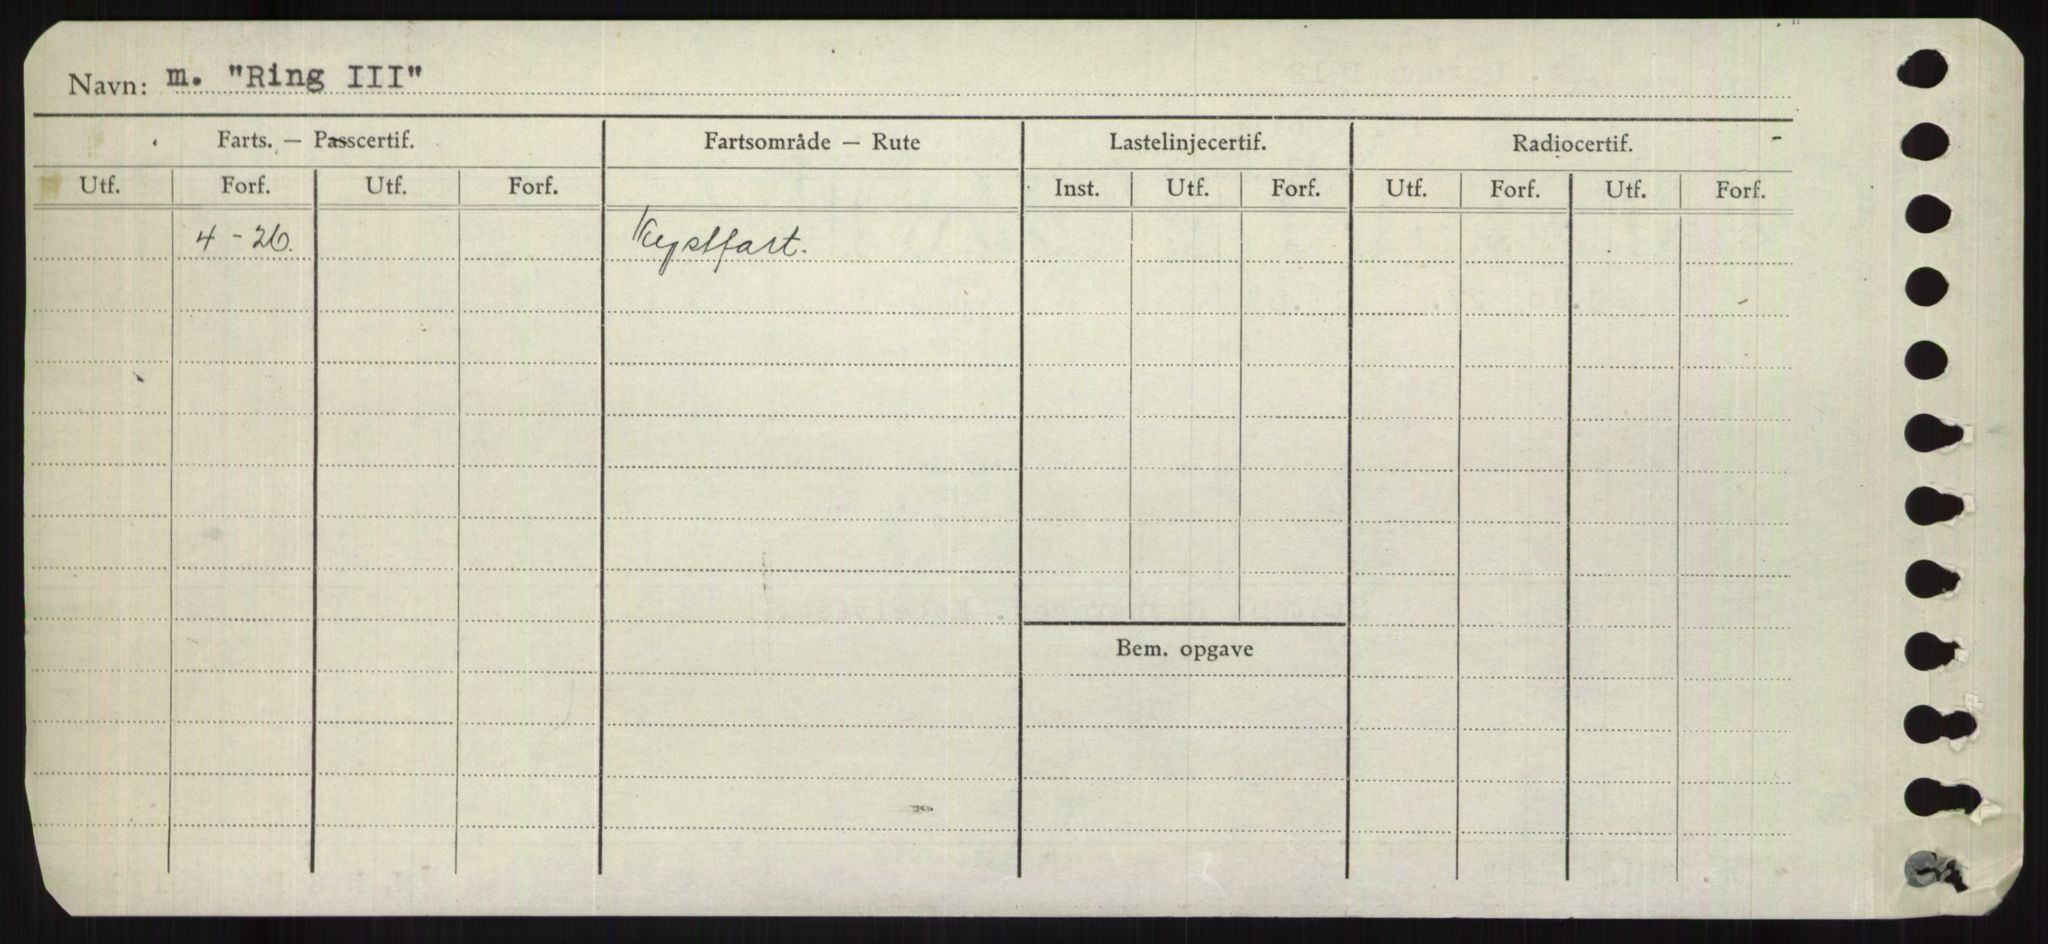 Navn: m. "Ring III"
Farts. — Passcertif. Fartsområde — Rute Lastelinjecertif. Radiocertif.
Utf. Forf. Utf. Forf. Inst. Utf. Forf. Utf. Forf. Utf. Forf.
4 - 26. Kystfart.
Bem. opgave